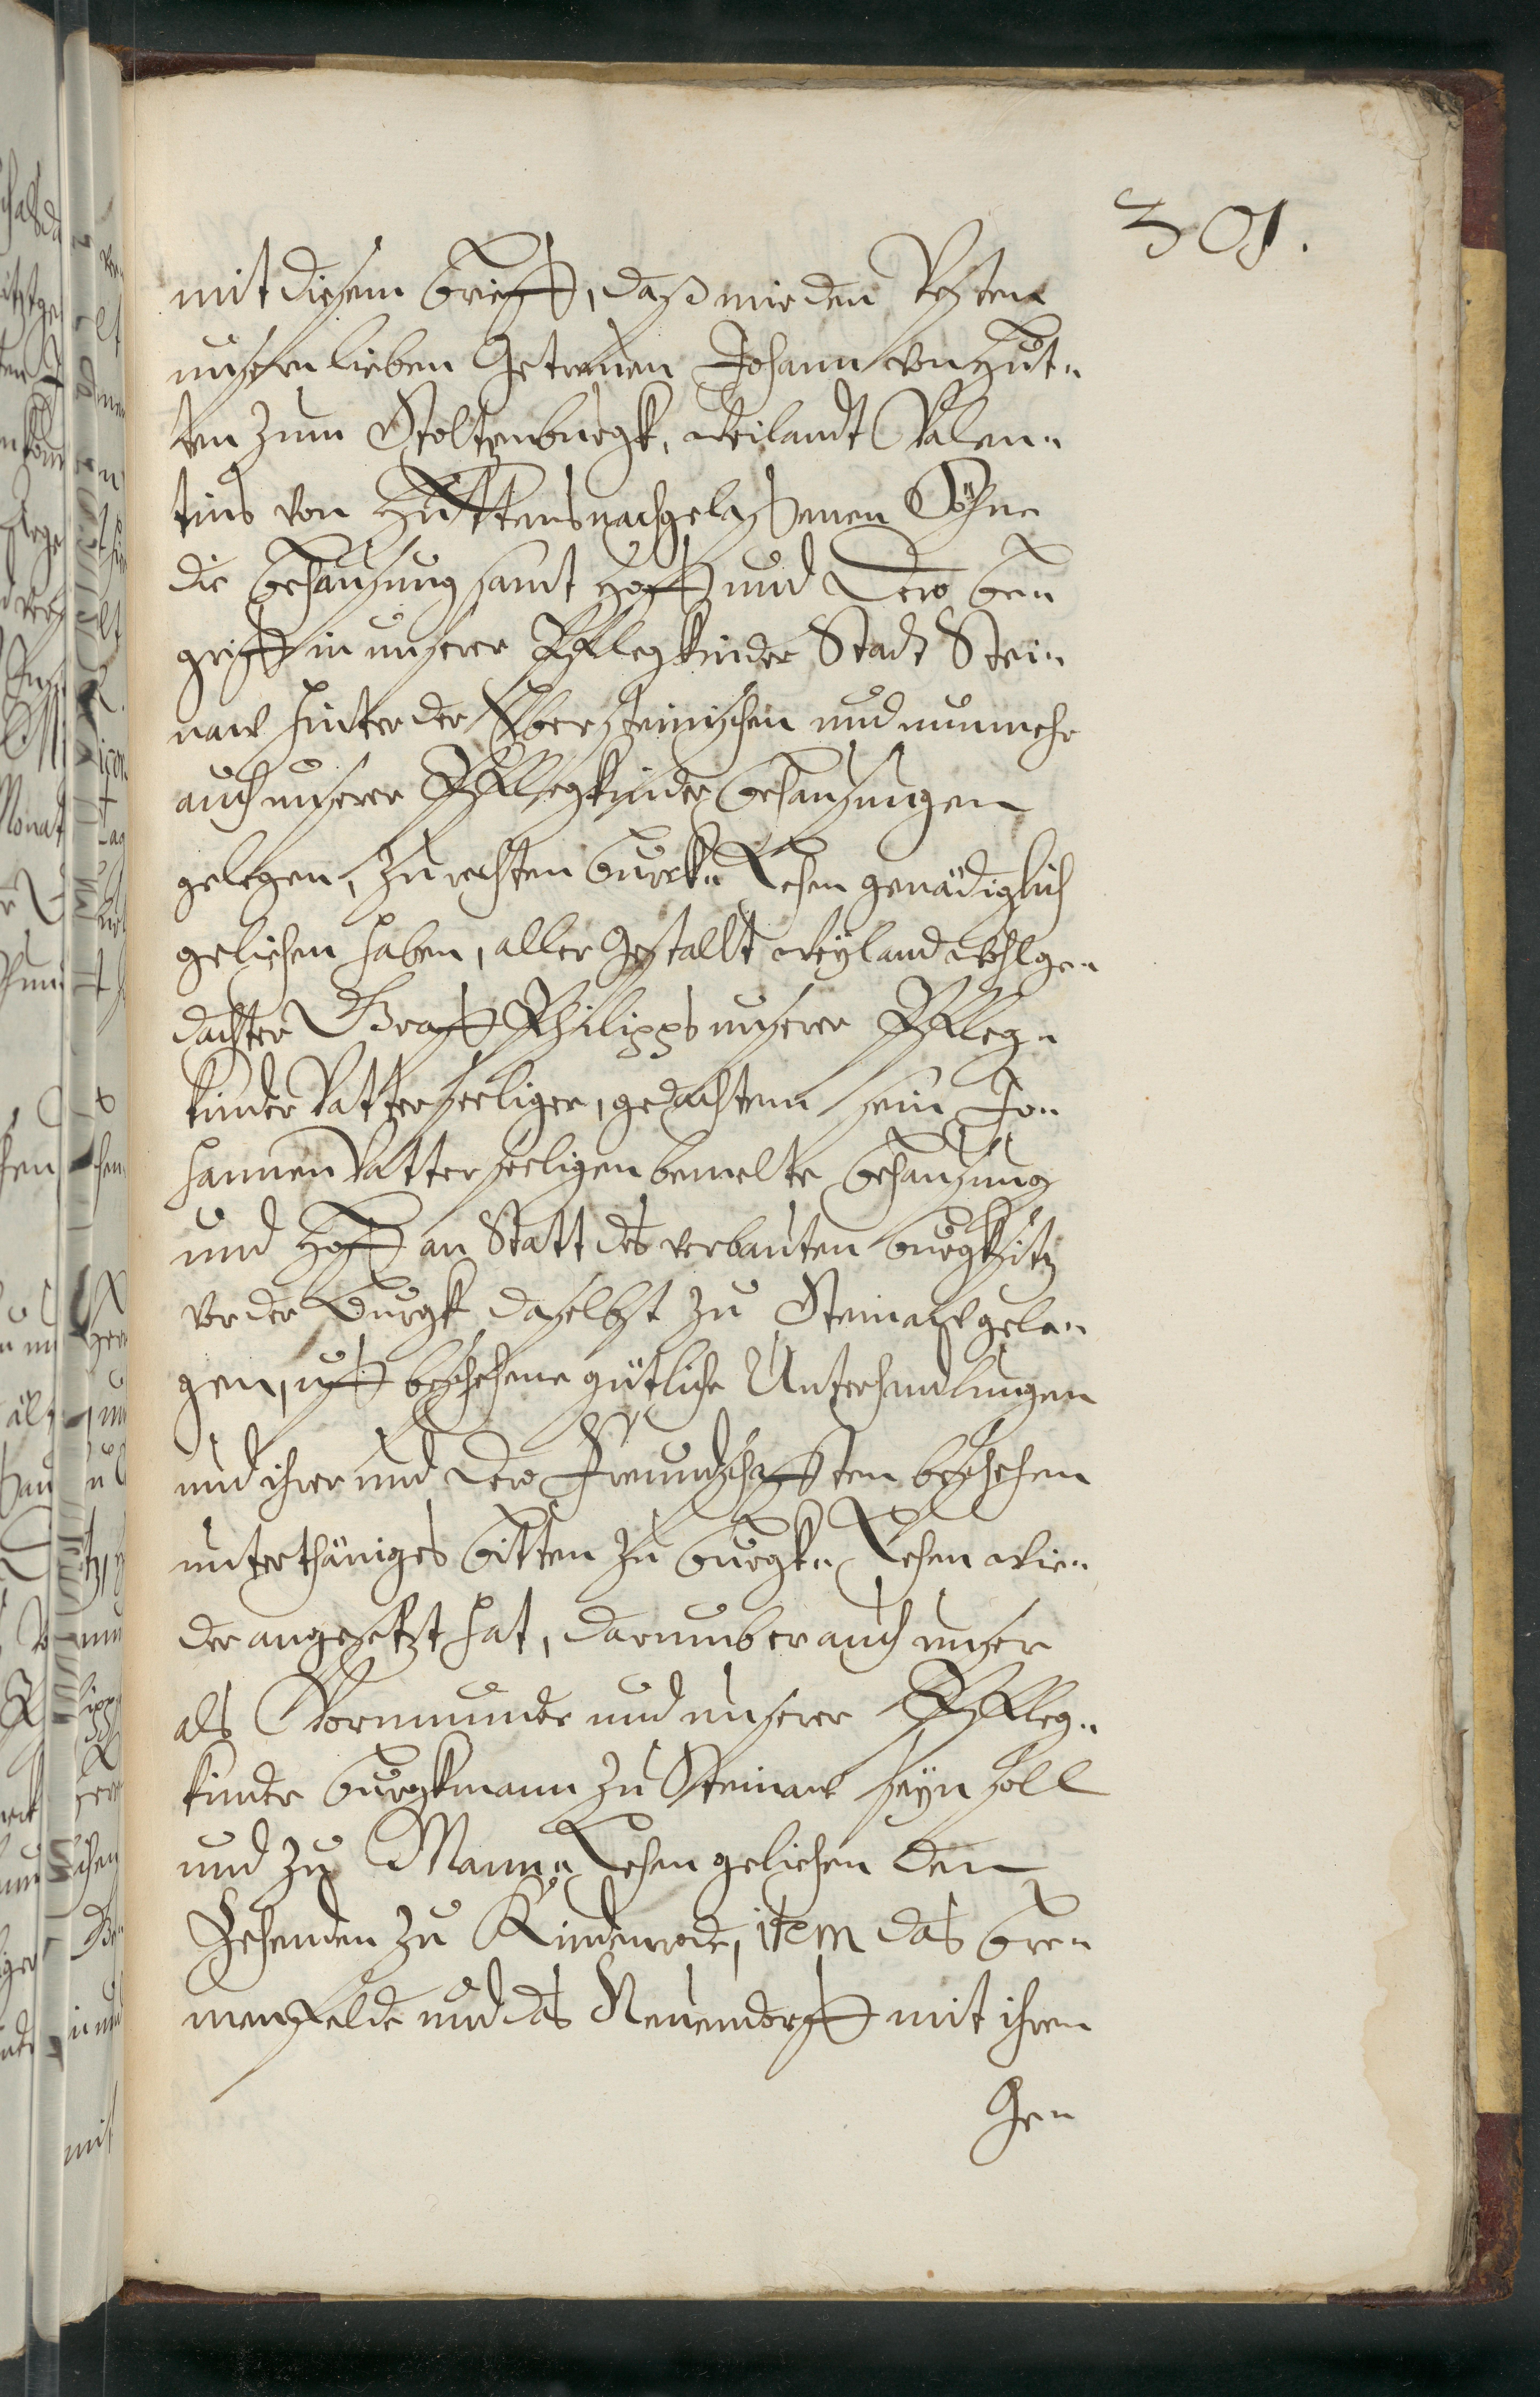 301.
mit diesem Brieff, daß wir den Vesten
unsern lieben Getreuen Johann von Hut„
ten zum Stoltzenburgk, weilandt Valen„
tins von Huttens nachgelaßenen Sohne
die Behausung samt Hoff und Dero Be„
griff in unserer Pflegkinder Stadt Stei„
naw hinter der Ebersteinischen und nunmehr
auch unserer Pflegkinder Behausungen
gelegen, zu rechten Burck„ Lehen genädiglich
geliehen haben, aller Gestallt weyland wohlge„
dachter Graff Philipps unserer Pfleg„
kinder Vatter seeliger, gedachtem sein Jo„
hannen Vatter seeligen bemelte Behausung
und Hoff an Statt des verbauten Burgksitz
vor der Burgk daselbst zu Steinaw gele„
gen, uff beschehene gütliche Unterhandlungen
und ihrer und Dero Freundschafften beschehen
unterthäniges Bitten zu Burgk„ Lehen wie„
der angesetzt hat, darumb er auch unser
als Vormunder und unserer Pfleg„
kinder Burgkmann zu Steinaw seyn soll
und zu Mann„ Lehen geliehen den
Zehenden zu Kindenrode, item das Bre„
menfelde und das Neuendorff mit ihren
Ge„